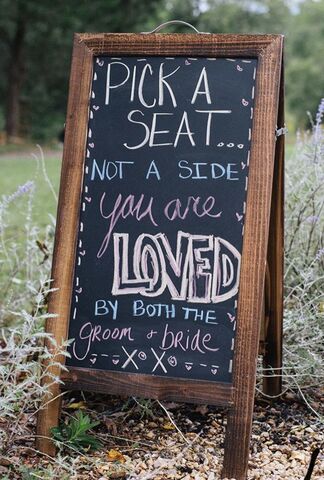 PICK A
SEAT...
NOT A SIDE
you are
LOVED
BY BOTH THE
groom + bride
XOXO